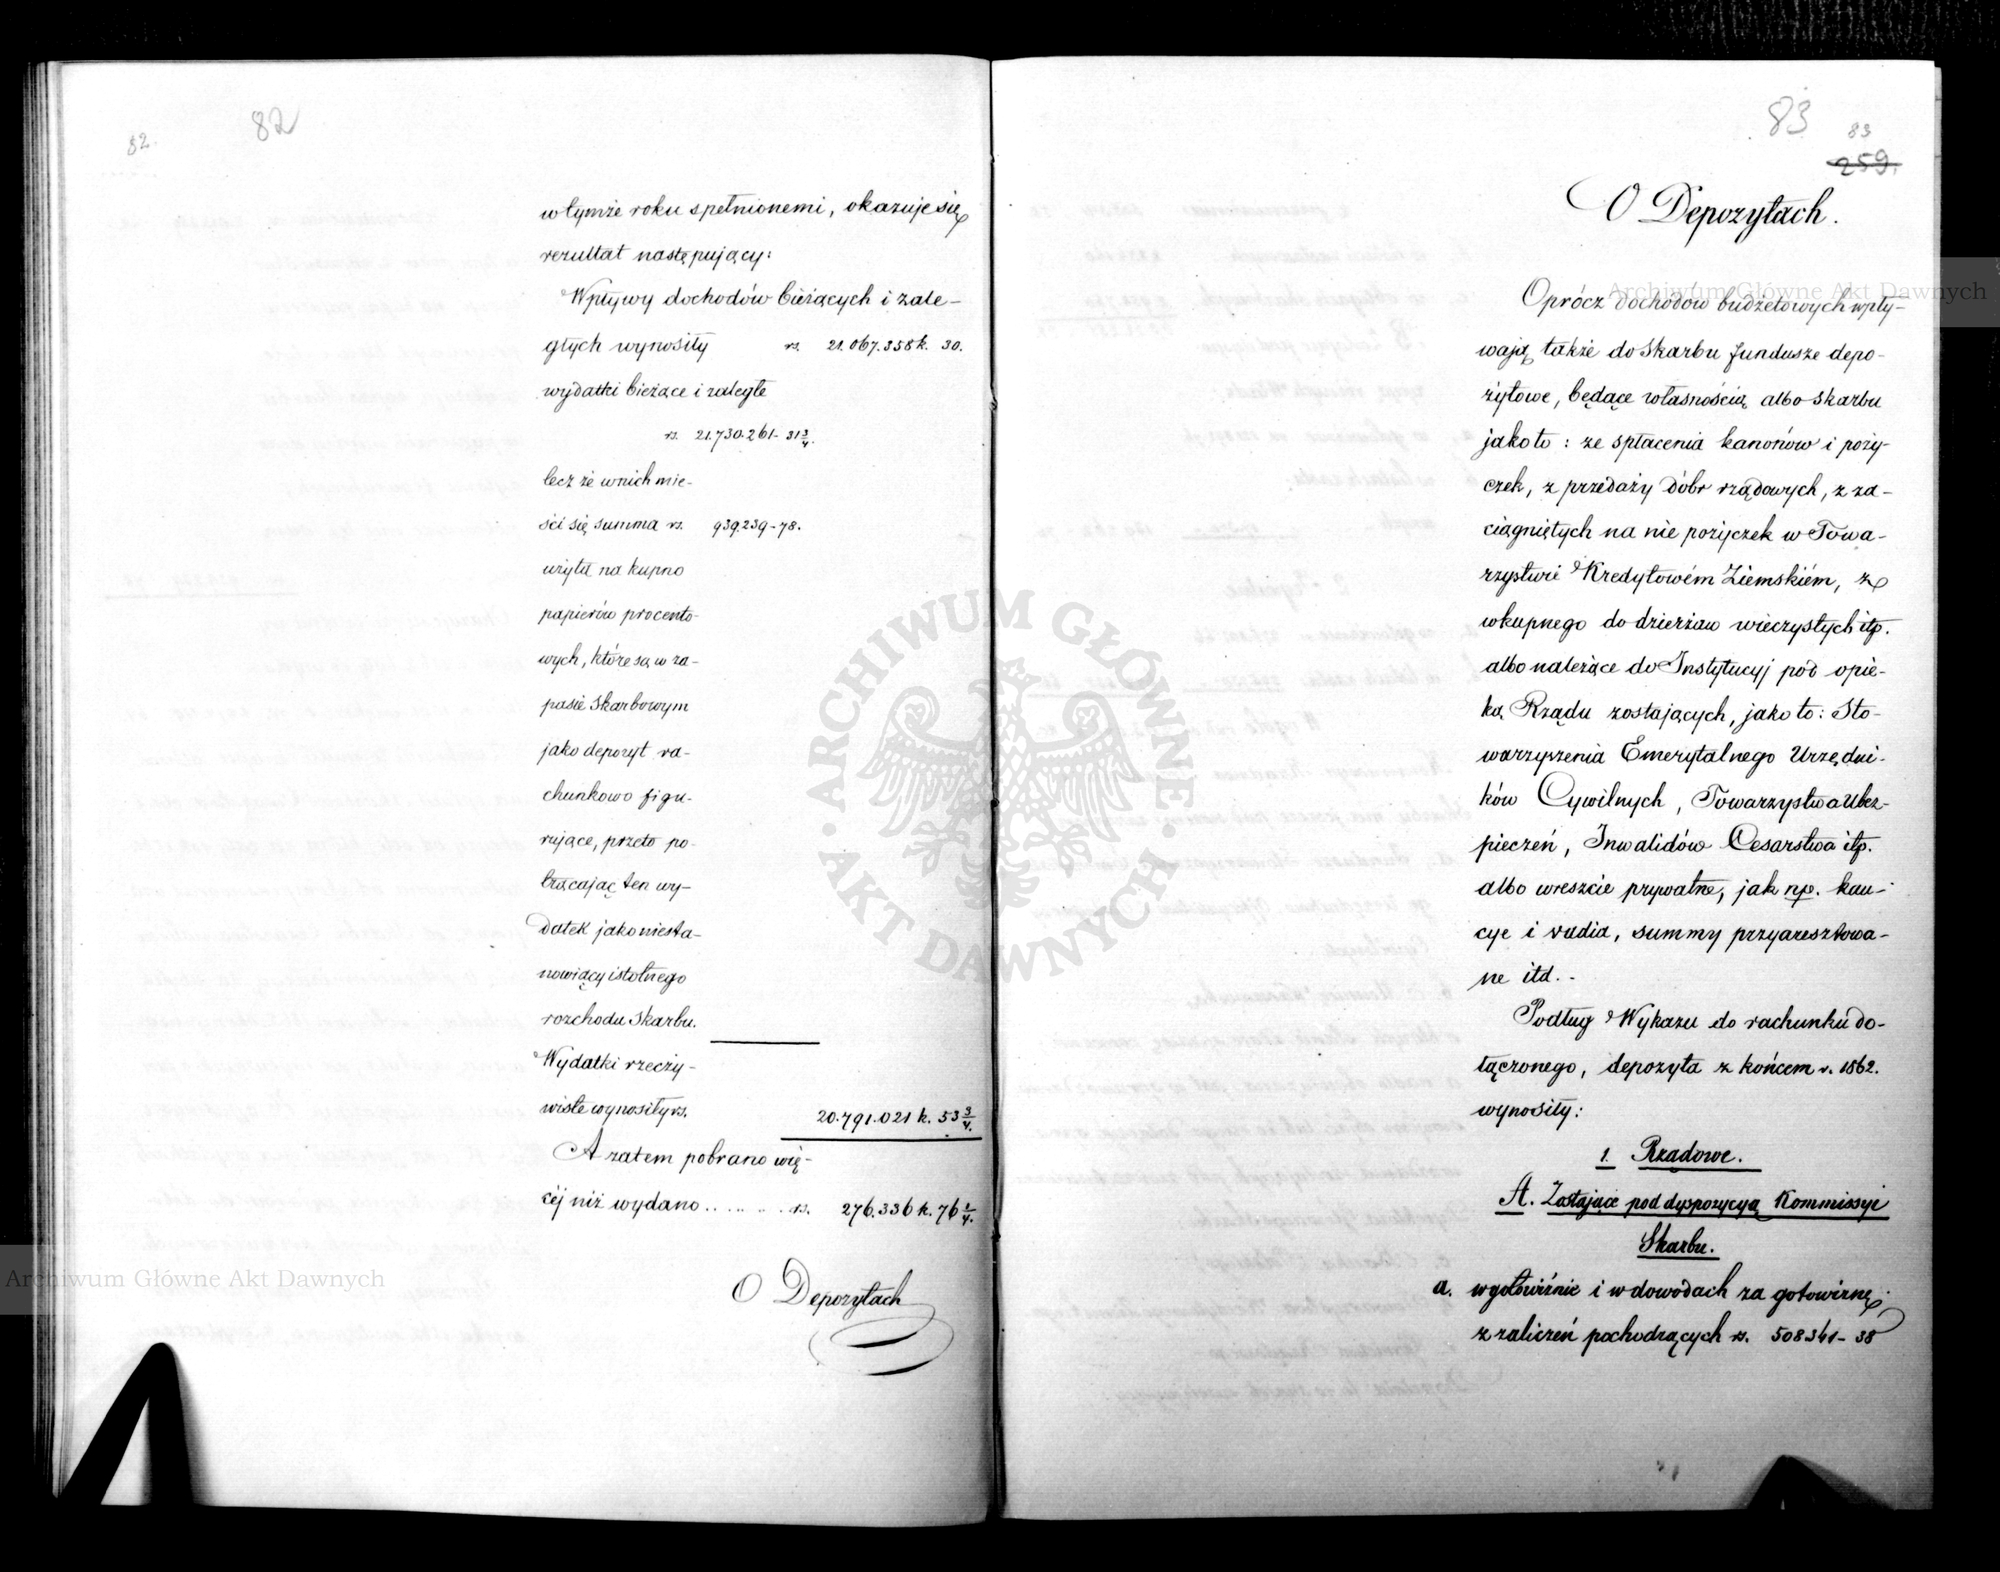 82.
82
w tymże roku spełnionemi, okazuje się
rezultat następujący:
Wpływy dochodów bieżących i zale-
głych wynosiły rs. 21.067.358 k. 30.
wydatki bieżące i zaległe
rs. 21.730.261 - 31 3/4.
lecz że w nich mie-
ści się summa rs. 939.239 - 78.
użyta na kupno
papierów procento-
wych, które są w za-
pasie skarbowym
jako depozyt ra-
chunkowo figu-
rujące, przeto po-
trącając ten wy-
datek jako niesta-
nowiący istotnego
rozchodu Skarbu.
Wydatki rzeczy-
wiste wynosiły rs. 20.791.021 k. 53 3/4.
A zatem pobrano wię-
cej niż wydano ...... rs. 276.336 k. 76 1/4.
O Depozytach
83
83
259.
O Depozytach.
Oprócz dochodów budżetowych wpły-
wają także do Skarbu fundusze depo-
zytowe, będące własnością albo Skarbu
jako to: ze spłacenia kanonów i poży-
czek, z przedaży dóbr rządowych, z za-
ciągniętych na nie pożyczek w Towa-
rzystwie Kredytowém Ziemskiém, z
wkupnego do dzierżaw wieczystych itp.
albo należące do Instytucyj pod opie-
ką Rządu zostających, jako to: Sto-
warzyszenia Emerytalnego Urzędni-
ków Cywilnych, Towarzystwa Ubez-
pieczeń, Inwalidów Cesarstwa itp.
albo wreszcie prywatne, jak np. kau-
cye i vadia, summy przyaresztowa-
ne itd. -
Podług Wykazu do rachunku do-
łączonego, depozyta z końcem r. 1862.
wynosiły:
1. Rządowe.
A. Zostające pod dyspozycyą Kommissyi
Skarbu.
a. w gotowiźnie i w dowodach za gotowiznę
z zaliczeń pochodzących rs. 508341 - 38
Archiwum Główne Akt Dawnych
Archiwum Główne Akt Dawnych
ARCHIWUM GŁÓWNE
AKT DAWNYCH